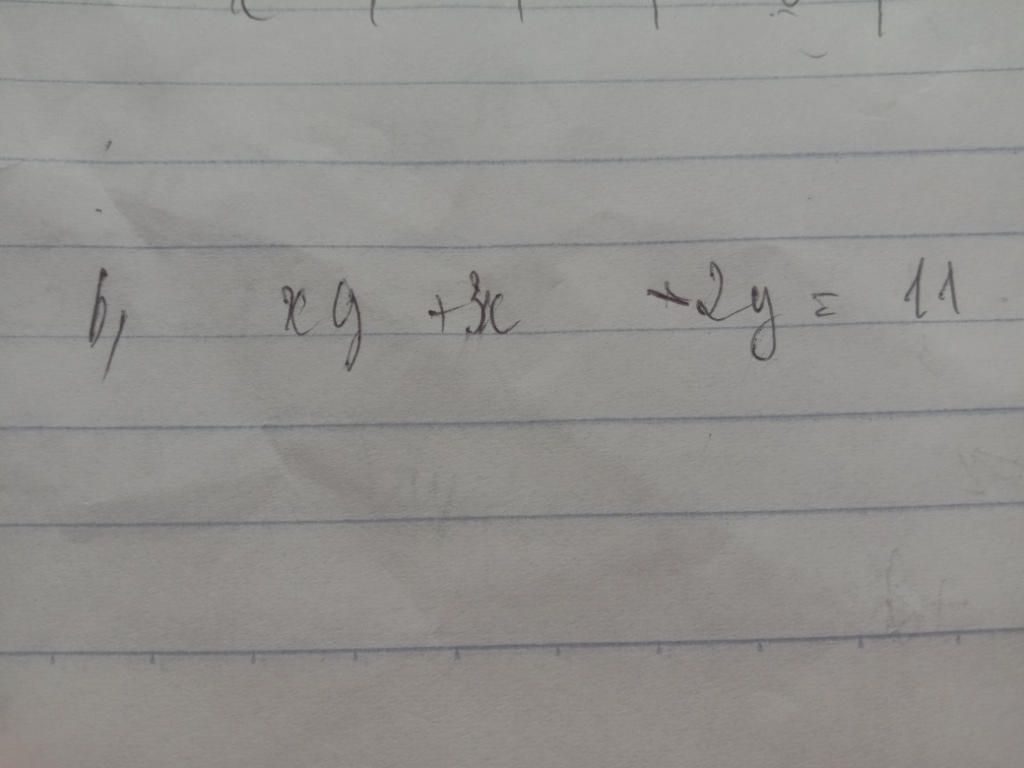 b, xy +3x -2y = 11